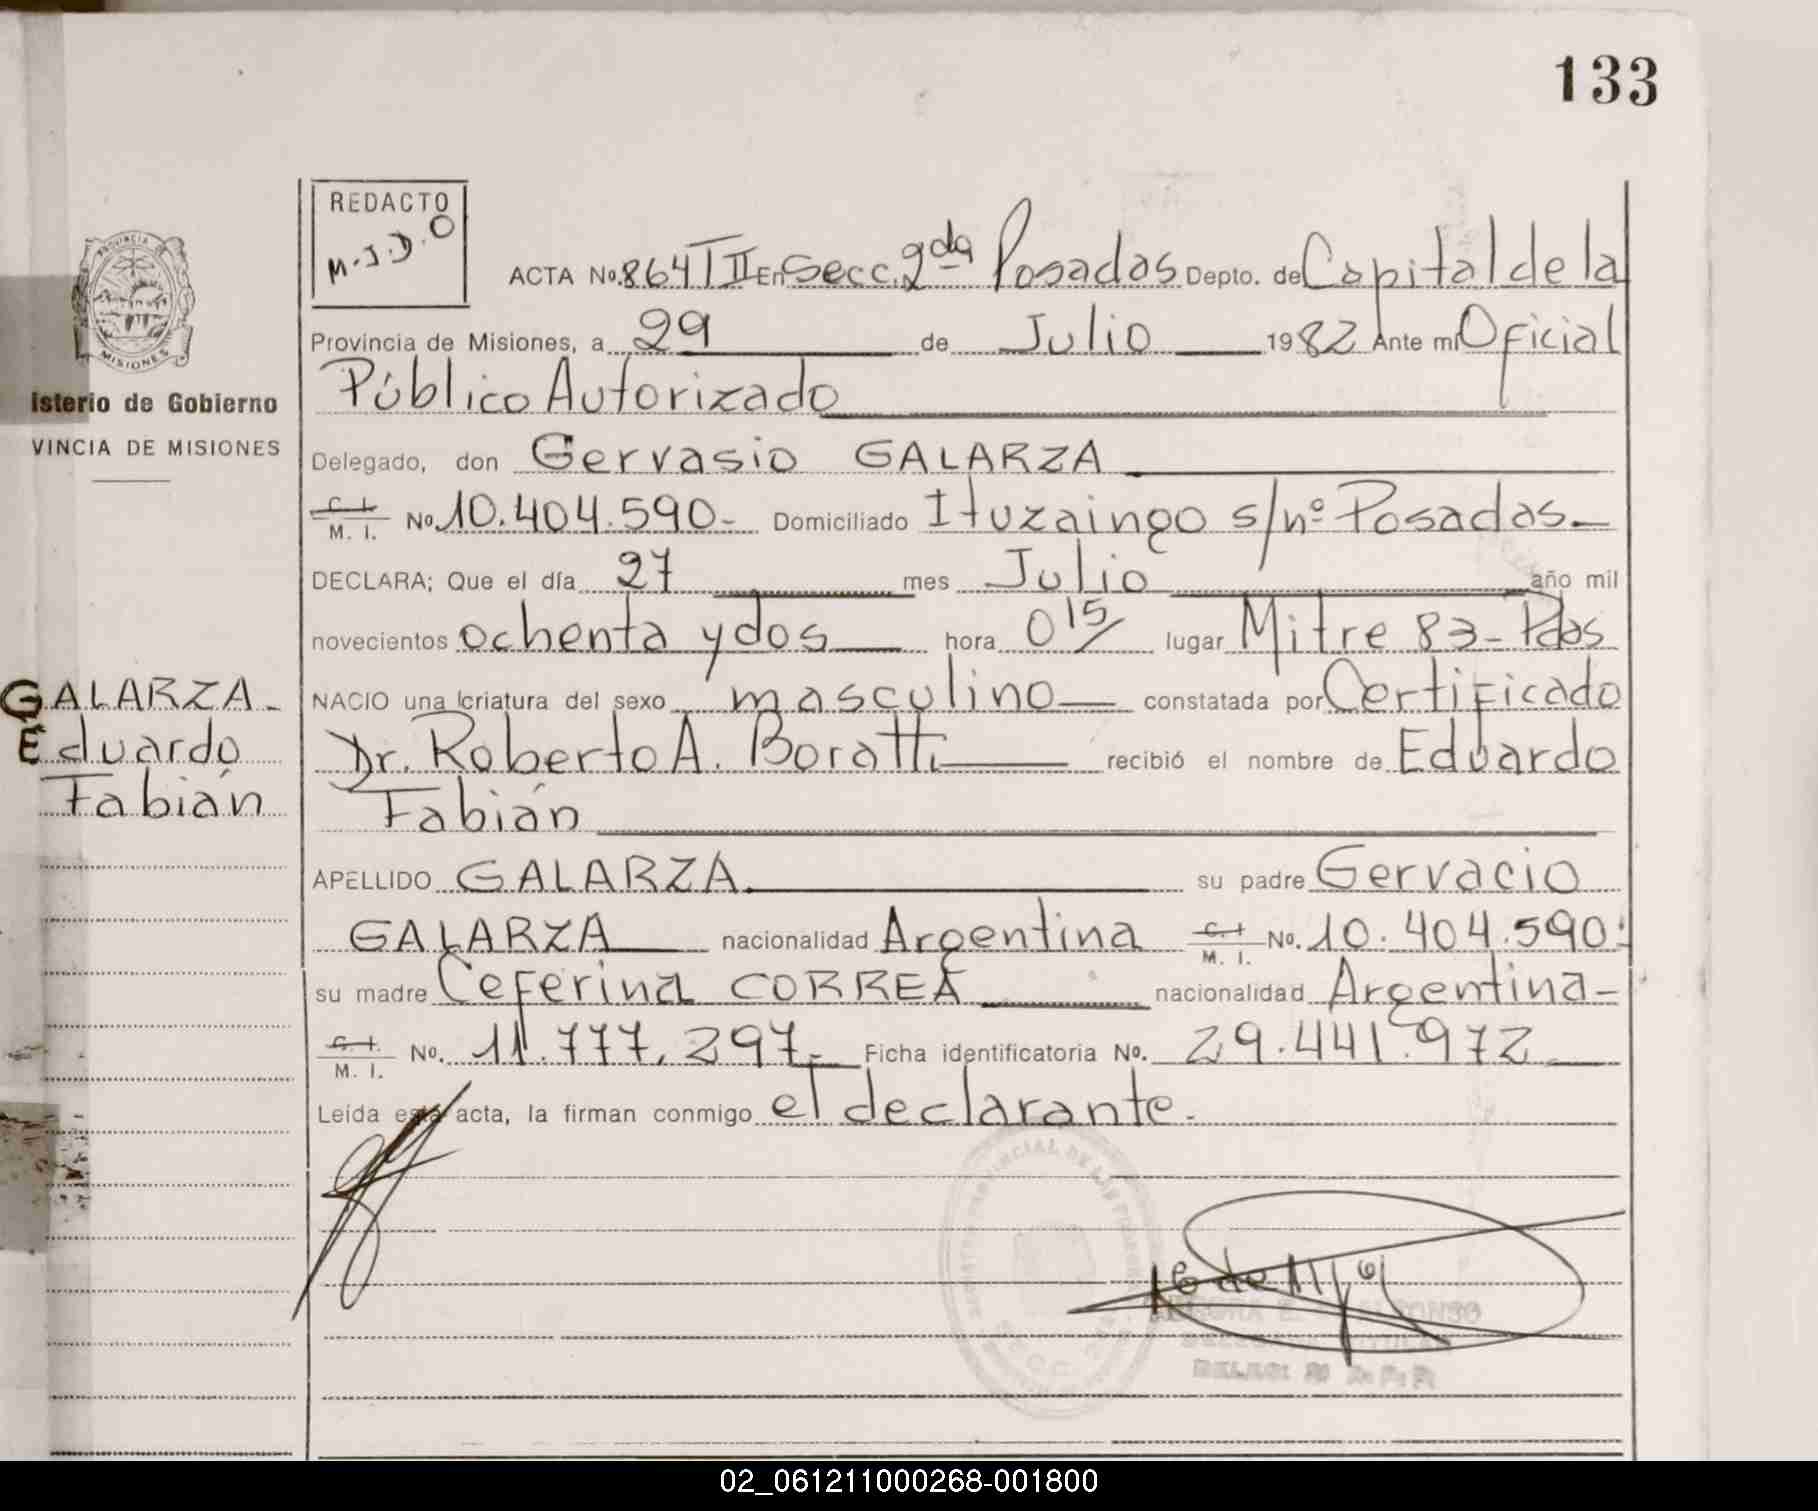 133
REDACTO
M.J.D.O
PROVINCIA DE
MISIONES
ACTA No. 864 T II En Secc. 2da Posadas Depto. de Capital de la
Provincia de Misiones, a 29 de Julio 1982 Ante mi Oficial
isterio de Gobierno
Público Autorizado
VINCIA DE MISIONES
Delegado, don Gervasio GALARZA
C. I. M. I. No. 10.404.590- Domiciliado Ituzaingo s/nº Posadas.-
DECLARA; Que el día 27 mes Julio año mil
novecientos ochenta y dos hora 0 15/ lugar Mitre 83- Pdas
GALARZA-
NACIO una criatura del sexo masculino constatada por Certificado
Eduardo
Dr. Roberto A. Boratti recibió el nombre de Eduardo
Fabián
Fabián
APELLIDO GALARZA su padre Gervacio
GALARZA nacionalidad Argentina C. I. M. I. No. 10.404.590-
su madre Ceferina CORREA nacionalidad Argentina-
C. I. M. I. No. 11.777.297- Ficha identificatoria No. 29.441.972
Leída esta acta, la firman conmigo el declarante.
02_061211000268-001800